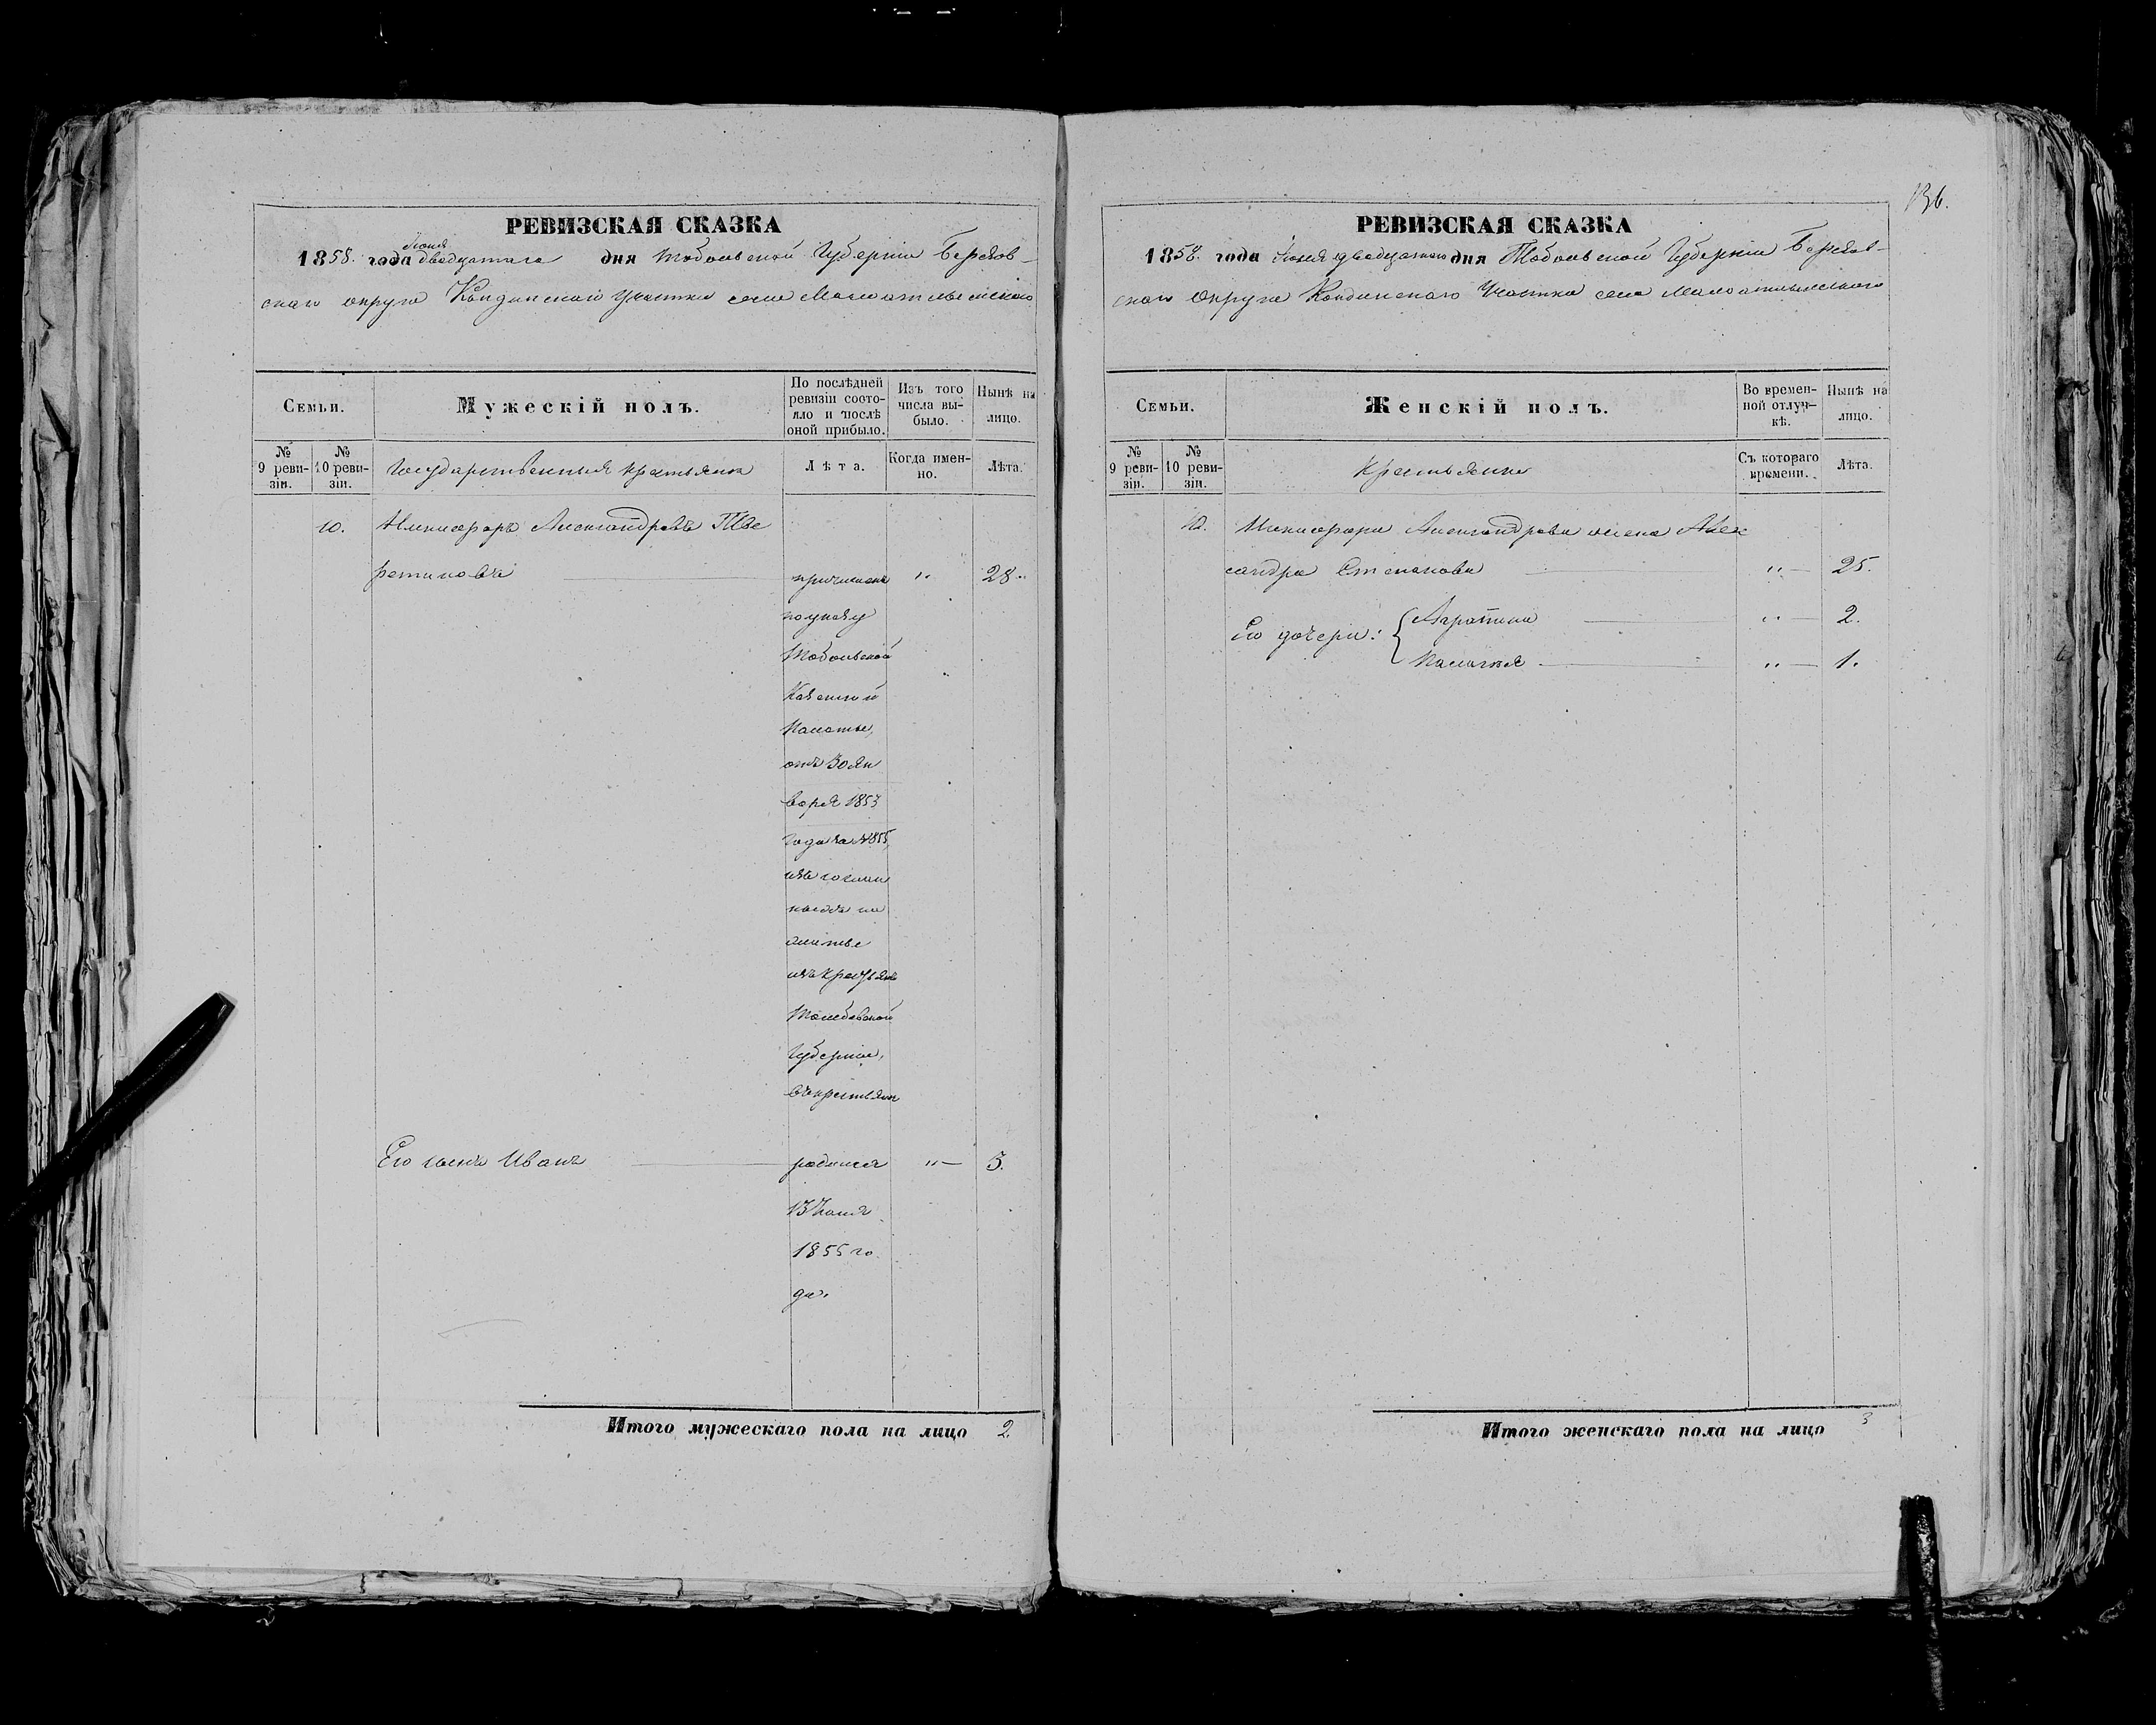 РЕВИЗСКАЯ СКАЗКА
Июня
1858. года двадцатаго дня Тобольской Губерніи Березов-
скаго округа Кондинскаго участка села Малоатлымскаго
Семьи.
Мужескій полъ.
По послѣдней
ревизіи состо-
яло и послѣ
оной прибыло.
Изъ того
числа вы-
было.
Нынѣ на
лицо.
№
9 реви-
зіи.
№
10 реви-
зіи.
Государственныя крестьяна
Лѣта.
Когда имен-
но.
Лѣта.
10. Никифоръ Александровъ
причисленъ " 28.
по указу
Тобольской
Казенной
Палаты,
отъ 30 Ян
варя 1853
года за №
изъ сослан
ныхъ на
житье
изъ крестьянъ
Тамбовской
Губерніи,
въ крестьяна
Его сынъ Иванъ родился " — 3.
13 Іюня
1855 го
да.
Итого мужескаго пола на лицо 2.
136.
РЕВИЗСКАЯ СКАЗКА
1858. года Іюня двадцатаго дня Тобольской Губерніи Березов-
скаго округа Кондинскаго Участка села Малоатлымскаго
Семьи.
Женскій полъ.
Во времен-
ной отлуч-
кѣ.
Нынѣ на
лицо.
№
9 реви-
зіи.
№
10 реви-
зіи.
Крестьянки
Съ котораго
времени.
Лѣта.
10. Никифора Александрова жена Алек
сандра Степанова " — 25.
Его дочери: " — 2.
Палагея " — 1.
Итого женскаго пола на лицо 3